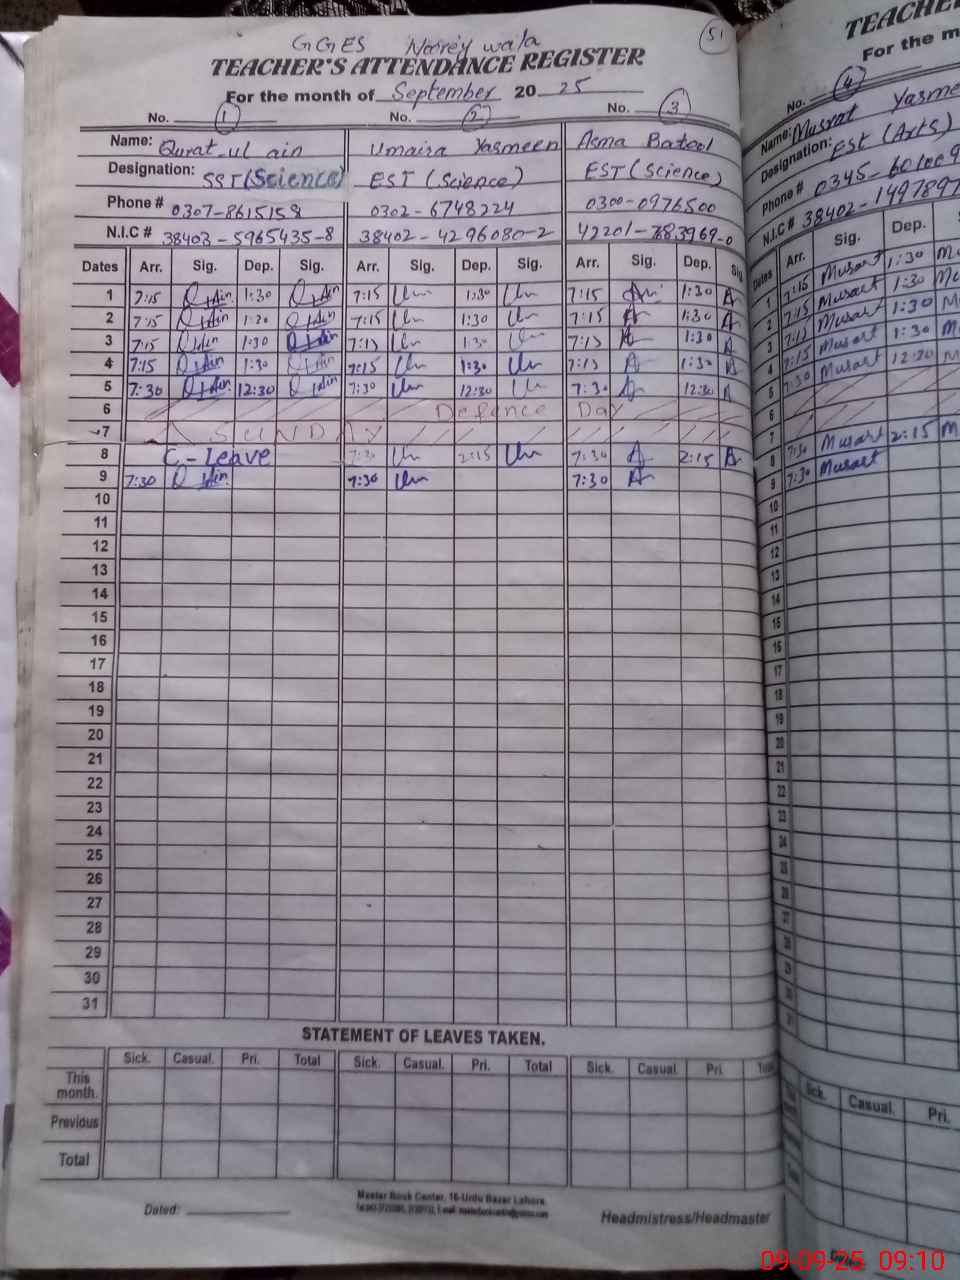 51
GGES Norey wala
TEACHER'S ATTENDANCE REGISTER
For the month of September 20 25
No. 1 No. 2 No. 3
Name: Qurat-ul ain Umaira Yasmeen Asma Batool
Designation: SST (Science) EST (Science) EST (Science)
Phone # 0307-8615158 0302-6748224 0300-0976500
N.I.C # 38403-5965435-8 38402-4296080-2 42201-7683969-0
Dates Arr. Sig. Dep. Sig. Arr. Sig. Dep. Sig. Arr. Sig. Dep. Sig
1 7:15 1:30 7:15 1:30 7:15 1:30
2 7:15 1:20 7:15 1:30 7:15 1:30
3 7:15 1:30 7:15 1:3 7:15 1:30
4 7:15 1:30 7:15 1:30 7:15 1:30
5 7:30 12:30 7:30 12:30 7:30 12:30
6 Defence Day
7 SUNDAY
8 C-Leave 7:30 2:15 7:30 2:15
9 7:30 7:30 7:30
10
11
12
13
14
15
16
17
18
19
20
21
22
23
24
25
26
27
28
29
30
31
STATEMENT OF LEAVES TAKEN.
Sick. Casual. Pri. Total Sick. Casual. Pri. Total Sick. Casual. Pri.
This month.
Previous
Total
Dated:
Master Book Center, 16-Urdu Bazar Lahore.
Headmistress/Headmaster
TEACHE
For the m
No. 4
Name: Musrat Yasme
Designation: EST (Arts)
Phone # 0345-601009
N.I.C # 38402-1497897
Dates Arr. Sig. Dep.
1 7:15 Musart 1:30
2 7:15 Musart 1:30
3 7:15 Musart 1:30
4 7:15 Musart 1:30
5 7:30 Musart 12:30
6
7
8 7:30 Musart 2:15
9 7:30 Musart
10
11
12
13
14
15
16
17
18
19
20
21
22
23
24
Sick. Casual. Pri.
09-09-25 09:10